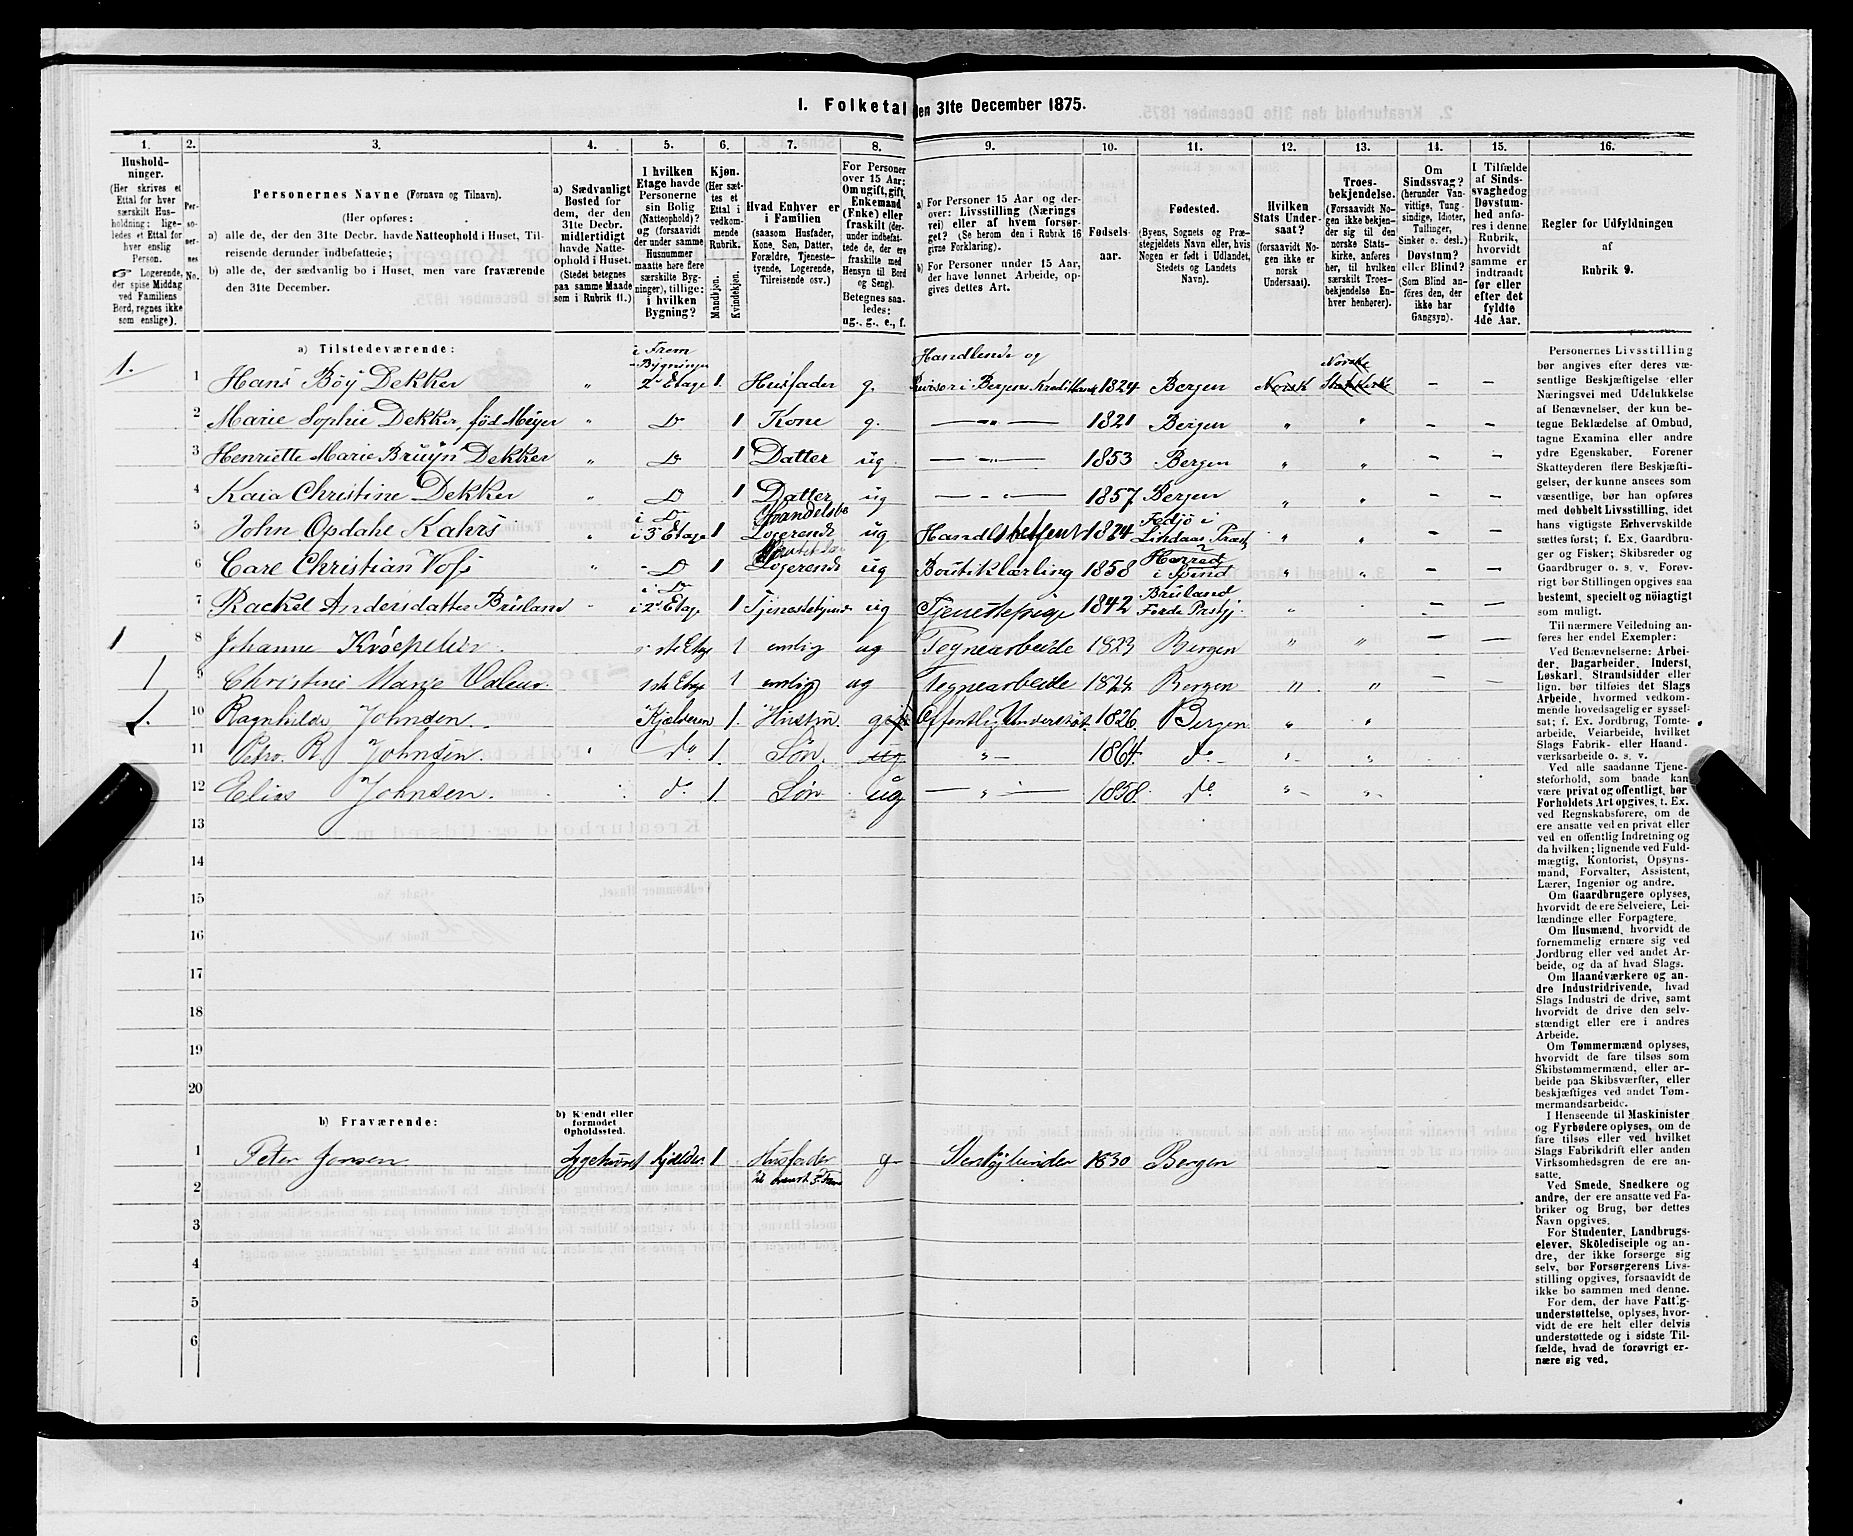 1. Folketal den 31te December 1875.
1. 2. 3. 4. 5. 6. 7. 8. 9. 10. 11. 12. 13. 14. 15. 16.
Hushold-
ninger.
(Her skrives et
Ettal for hver
særskilt Hus-
holdning; lige-
ledes et Ettal for
hver enslig
Person.
☞ Logerende,
der spise Middag
ved Familiens
Bord, regnes ikke
som enslige).
Per-
so-
ner-
nes
No.
Personernes Navne (Fornavn og Tilnavn).
(Her opføres:
a) alle de, der den 31te Decbr. havde Natteophold i Huset, Til-
reisende derunder indbefattede;
b) alle de, der sædvanlig bo i Huset, men vare fraværende
den 31te December.
a) Sædvanligt
Bosted for
dem, der den
31te Decbr.
midlertidigt
havde Natte-
ophold i Huset.
(Stedet betegnes
paa samme Maade
som i Rubrik 11.)
I hvilken
Etage havde
Personerne
sin Bolig
(Natteophold)?
og (forsaavidt
der under samme
Husnummer
maatte høre flere
særskilte Byg-
ninger), tillige:
i hvilken
Bygning?
Kjøn.
(Her sæt-
tes et
Ettal i
vedkom-
mende
Rubrik.)
Mandkjøn.
Kvindekjøn.
Hvad Enhver er
i Familien
(saasom Husfader,
Kone, Søn, Datter,
Forældre, Tjeneste-
tyende, Logerende,
Tilreisende osv.)
For Personer
over 15 Aar:
Om ugift, gift,
Enkemand
(Enke) eller
fraskilt (der-
under indbefat-
tede de, der ere
fraskilte med
Hensyn til Bord
og Seng).
Betegnes saa-
ledes:
ug., g., e., f.
a) For Personer 15 Aar og der-
over: Livsstilling (Nærings
vei) eller af hvem forsør-
get? (Se herom den i Rubrik 16
givne Forklaring).
b) For Personer under 15 Aar,
der have lønnet Arbeide, op-
gives dettes Art.
Fødsels-
aar.
Fødested.
(Byens, Sognets og Præ-
stegjeldets Navn eller, hvis
Nogen er født i Udlandet,
Stedets og Landets
Navn).
Hvilken
Stats Under-
saat?
(forsaavidt No-
gen ikke er
norsk
Undersaat).
Troes-
bekjendelse.
(Forsaavidt No-
gen ikke bekjen-
der sig til den
norske Stats-
kirke, anføres
her, til hvilken
særskilt Troes-
bekjendelse En-
hver henhører).
Om
Sindssvag?
(herunder Van-
vittige, Tung-
sindige, Idioter,
Tullinger,
Sinker o. desl.)
Døvstum?
eller Blind?
(Som Blind an-
føres den, der
ikke har
Gangsyn).
I Tilfælde
af Sinds-
svaghed og
Døvstum-
hed anfø-
res i denne
Rubrik,
hvorvidt
samme er
indtraadt
før eller
efter det
fyldte
4de Aar.
Regler for Udfyldningen
af
Rubrik 9.
a) Tilstedeværende:
1. 1 Hans Böy Dekker " i Frem Bygningen 2. Etage 1. Husfader g. Handlende og Revisor i Bergens Kreditbank 1824 Bergen Norsk Norske Statskirke – –
2 Marie Sophie Dekker, fød Meyer " Do 1 Kone g. – " – 1821 Bergen " " – –
3 Henriette Marie Bruyn Dekker " Do 1 Datter ug. – " – 1853 Bergen " " – –
4 Kaia Christine Dekker " Do 1 Datter ug – " – 1857 Bergen " " – –
5 John Opdahl Kahrs " i Do i 3. Etage 1 Logerende ug 1874 Fedjö i Lindaas Præst " " – –
6 Carl Christian Voss " Do 1 Logerende ug Boutiklærling 1858 i " " – –
7 Rackel Andersdatter Bruland i Do i 2. Etage 1 Tjenestetyende ug Tjenestepige 1842 Bruland Førde Præstgj. " " – –
1 8 Johanne 1ste Etage 1 enslig ug Tegnearbeide 1823 Bergen " " – –
1 9 Christine Marie Valeur 1ste Etage 1 enslig ug Tegnearbeide 1824 Bergen " " – –
1. 10 Ragnhilde Johnsen. Kjælderen 1. Hustru. gift Offentlig Understøt. 1826 Bergen " "
11 Petro. R. Johnsen. do 1. Søn. ug " – 1864. do – " "
12 Elias Johnsen. do 1. Søn ug – " – 1858. do " "
13
14
15
16
17
18
19
20
b) Fraværende:
b) Kjendt eller
formodet
Opholdssted.
1 Peter Jonsen Sygehuset Kjelder 1 Husfader g Bergen 1830 –
2
3
4
5
6
Personernes Livsstilling
bør angives efter deres væ-
sentlige Beskjæftigelse eller
Næringsvei med Udelukkelse
af Benævnelser, der kun be-
tegne Beklædelse af Ombud,
tagne Examina eller andre
ydre Egenskaber. Forener
Skatteyderen flere Beskjæfti-
gelser, der kunne ansees som
væsentlige, bør han opføres
med dobbelt Livsstilling, idet
hans vigtigste Erhvervskilde
sættes først; f. Ex. Gaardbru-
ger og Fisker; Skibsreder og
Gaardbruger o. s. v. Forøv-
rigt bør Stillingen opgives saa
bestemt, specielt og nöiagtigt
som muligt.
Til nærmere Veiledning an-
føres her endel Exempler:
Ved Benævnelserne: Arbei-
der, Dagarbeider, Inderst,
Løskarl, Strandsidder eller
lign. bør tilføies det Slags
Arbeide, hvormed vedkom-
mende hovedsagelig er syssel-
sat; f. Ex. Jordbrug, Tomte-
arbeide, Veiarbeide, hvilket
Slags Fabrik- eller Haand-
værksarbeide o. s. v.
Ved alle saadanne Tjene-
steforhold, som baade kan
være privat og offentligt, bør
Forholdets Art opgives, t. Ex.
ved Regnskabsførere, om de
ere ansatte ved en privat eller
ved en offentlig Indretning og
da hvilken; lignende ved Fuld-
mægtig, Kontorist, Opsyns-
mand, Forvalter, Assistent,
Lærer, Ingeniør og andre.
Om Gaardbrugere oplyses,
hvorvidt de ere Selveiere, Lei-
lændinge eller Forpagtere.
Om Husmænd, hvorvidt de
fornemmelig ernære sig ved
Jordbrug eller ved andet Ar-
beide, og da af hvad Slags.
Om Haandværkere og an-
dre Industridrivende, hvad
Slags Industri de drive, samt
hvorvidt de drive den selv-
stændigt eller ere i andres
Arbeide.
Om Tømmermænd oplyses,
hvorvidt de fare tilsøs som
Skibstømmermænd, eller ar-
beide paa Skibsværfter, eller
beskjæftiges ved andet Tøm-
mermandsarbeide.
I Henseende til Maskinister
og Fyrbødere oplyses, om de
fare tilsøs eller ved hvilket
Slags Fabrikdrift eller anden
Virksomhedsgren de ere an-
satte.
Ved Smede, Snedkere og
andre, der ere ansatte ved Fa-
briker og Brug, bør dettes
Navn opgives.
For Studenter, Landbrugs-
elever, Skoledisciple og an-
dre, der ikke forsørge sig
selv, bør Forsørgerens Livs-
stilling opgives, forsaavidt de
ikke bo sammen med denne.
For dem, der have Fattig-
understøttelse, oplyses, hvor-
vidt de ere helt eller delvis
understøttede og i sidste Til-
fælde, hvad de forøvrigt er-
nære sig ved.